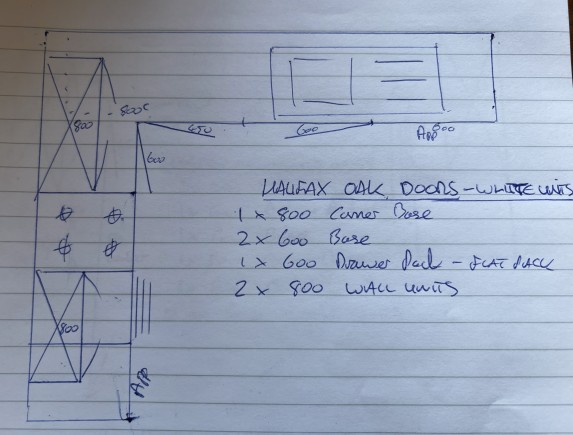 800
800c
450
600
App 600
600
HALIFAX OAK DOORS - WHITE UNITS
1 x 800 Corner Base
2 x 600 Base
1 x 600 Drawer Pack - FLAT PACK
2 x 800 WALL UNITS
800
APP